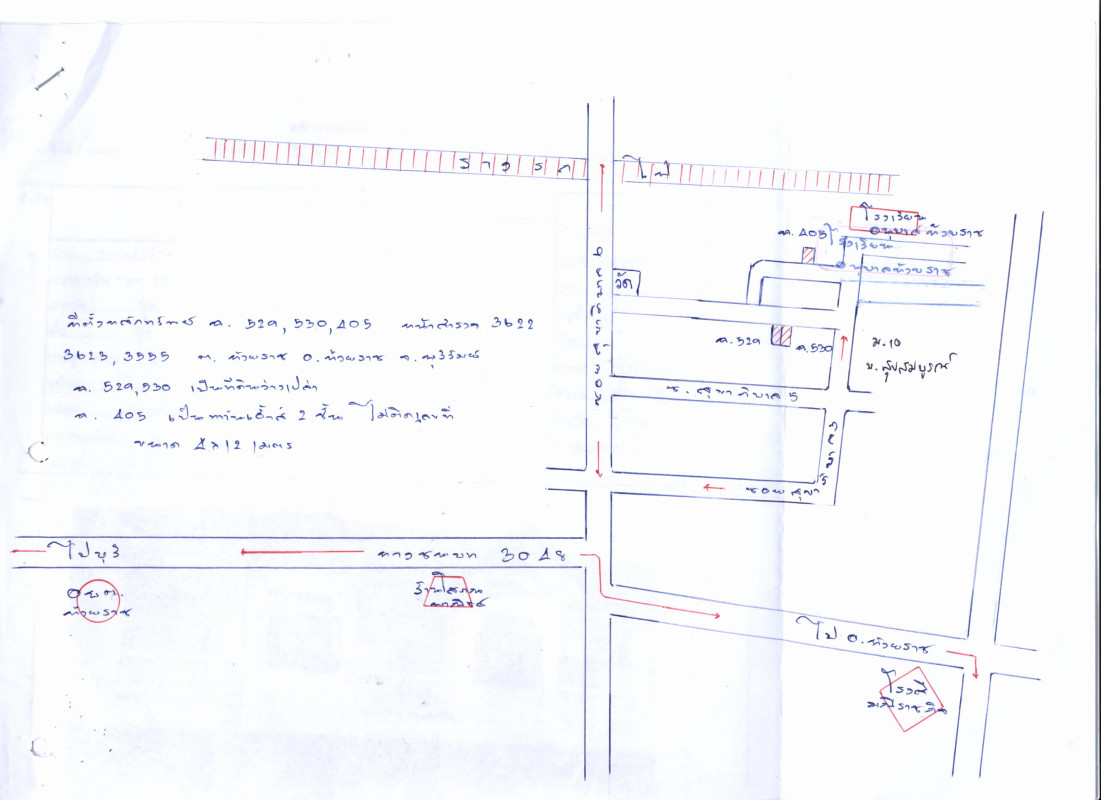 รางรถ
ไฟ
โรงเรียน
อนุบาลห้วยราช
ค. 405
โรงเรียน
อนุบาลห้วยราช
วัด
ที่ตั้งหลักทรัพย์ ค. 529, 530, 405 หน้าสำรวจ 3622
3623, 3555 ต. ห้วยราช อ. ห้วยราช จ. บุรีรัมย์
ค. 529, 530 เป็นที่ดินว่างเปล่า
ค. 405 เป็นทาวน์เฮ้าส์ 2 ชั้น ไม่ติดเลขที่
ขนาด 4x12 เมตร
ค. 529
ค. 530
ม. 10
บ. สุขสมบูรณ์
ซ. สุขาภิบาล 5
ซอย สุขา
ไปบุรี
ทางชนบท 3048
อบต.
ห้วยราช
ไป อ. ห้วยราช
โรงสี